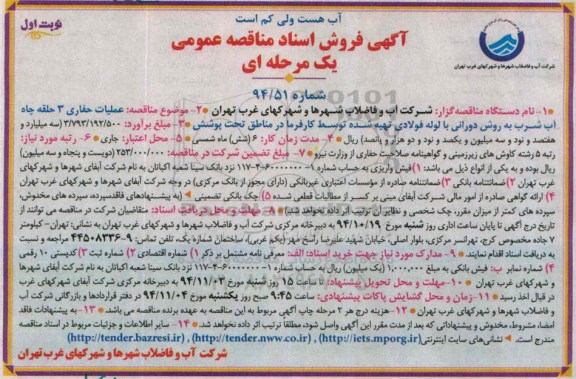 آب هست ولی کم است
نوبت اول
آگهی فروش اسناد مناقصه عمومی
یک مرحله ای
شرکت آب و فاضلاب شهرها و شهرکهای غرب تهران
شماره ۹۴/۵۱
۱- نام دستگاه مناقصه گزار: شرکت آب و فاضلاب شهرها و شهرکهای غرب تهران ۲- موضوع مناقصه: عملیات حفاری ۳ حلقه چاه
آب شرب به روش دورانی با لوله فولادی تهیه شده توسط کارفرما در مناطق تحت پوشش ۳- مبلغ برآورد: ۳/۷۹۳/۱۹۲/۵۰۰ (سه میلیارد و
هفتصد و نود و سه میلیون و یکصد و نود و دو هزار و پانصد) ریال ۴- مدت زمان کار: ۶ (شش) ماه شمسی ۵- محل اعتبار: جاری ۶- رتبه مورد نیاز:
رتبه ۵ رشته کاوش های زیرزمینی و گواهینامه صلاحیت حفاری از وزارت نیرو ۷- مبلغ تضمین شرکت در مناقصه: ۲۵۳/۰۰۰/۰۰۰ (دویست و پنجاه و سه میلیون)
ریال بوده و به یکی از انواع ذیل می باشد: ۱) فیش واریزی به حساب شماره نزد بانک سینا شعبه اکباتان به نام شرکت آبفای شهرها و شهرکهای
غرب تهران ۲) ضمانتنامه بانکی ۳) ضمانتنامه صادره از مؤسسات اعتباری غیربانکی (دارای مجوز از بانک مرکزی) در وجه شرکت آبفای شهرها و شهرکهای غرب تهران
۴) ارائه گواهی صادره از امور مالی شرکت آبفای مبنی بر کسر از مطالبات قطعی شده ۵) چک بانکی تضمینی (به پیشنهادهای فاقد سپرده، سپرده های مخدوش
سپرده های کمتر از میزان مقرر، چک شخصی و نظایر آن ترتیب اثر داده نخواهد شد) ۸- مهلت و محل دریافت اسناد: متقاضیان شرکت در مناقصه می توانند از
تاریخ درج آگهی تا پایان ساعت اداری روز شنبه مورخ ۹۴/۱۰/۱۹ به دبیرخانه مرکزی شرکت آب و فاضلاب شهرها و شهرکهای غرب تهران به نشانی: تهران- کیلومتر
۷ جاده مخصوص کرج، تهرانسر مرکزی، بلوار اصلی، خیابان شهید علیرضا راسخ مهر (یکم غربی)، ساختمان شماره یک، تلفن تماس: ۹-۴۴۵۰۸۳۳۶ مراجعه و نسبت
به دریافت اسناد اقدام نمایند. ۹- مدارک مورد نیاز جهت خرید اسناد: الف: معرفی نامه مشتمل بر ذکر ۱) شماره اقتصادی ۲) شماره ثبت ۳) کدپستی ۱۰ رقمی
۴) شماره نمابر ب: فیش بانکی به مبلغ ۱/۰۰۰/۰۰۰ (یک میلیون) ریال به شماره حساب نزد بانک سینا شعبه اکباتان به نام شرکت آبفای شهرها
و شهرکهای غرب تهران ۱۰- مهلت و محل تحویل پیشنهاد: تا ساعت ۱۵ روز شنبه مورخ ۹۴/۱۱/۰۳ به دبیرخانه مرکزی شرکت آبفای شهرها و شهرکهای غرب تهران
در قبال اخذ رسید ۱۱- زمان و محل گشایش پاکات پیشنهادی: ساعت ۹:۴۵ صبح روز یکشنبه مورخ ۹۴/۱۱/۰۴ در دفتر قراردادها و بازرگانی شرکت آب
و فاضلاب شهرها و شهرکهای غرب تهران ۱۲- هزینه درج هر ۲ مرحله چاپ آگهی مربوط به این مناقصه به عهده برنده مناقصه می باشد ۱۳- به پیشنهادات فاقد
امضا، مشروط، مخدوش و پیشنهاداتی که بعد از مدت مقرر این آگهی واصل شود، مطلقا ترتیب اثر داده نخواهد شد. ۱۴- سایر اطلاعات و جزئیات مربوط در اسناد مناقصه
مندرج است. نشانی های سایت اینترنتی (http://iets.mporg.ir) , (http://tender.nww.co.ir) , (http://tender.bazresi.ir)
شرکت آب و فاضلاب شهرها و شهرکهای غرب تهران